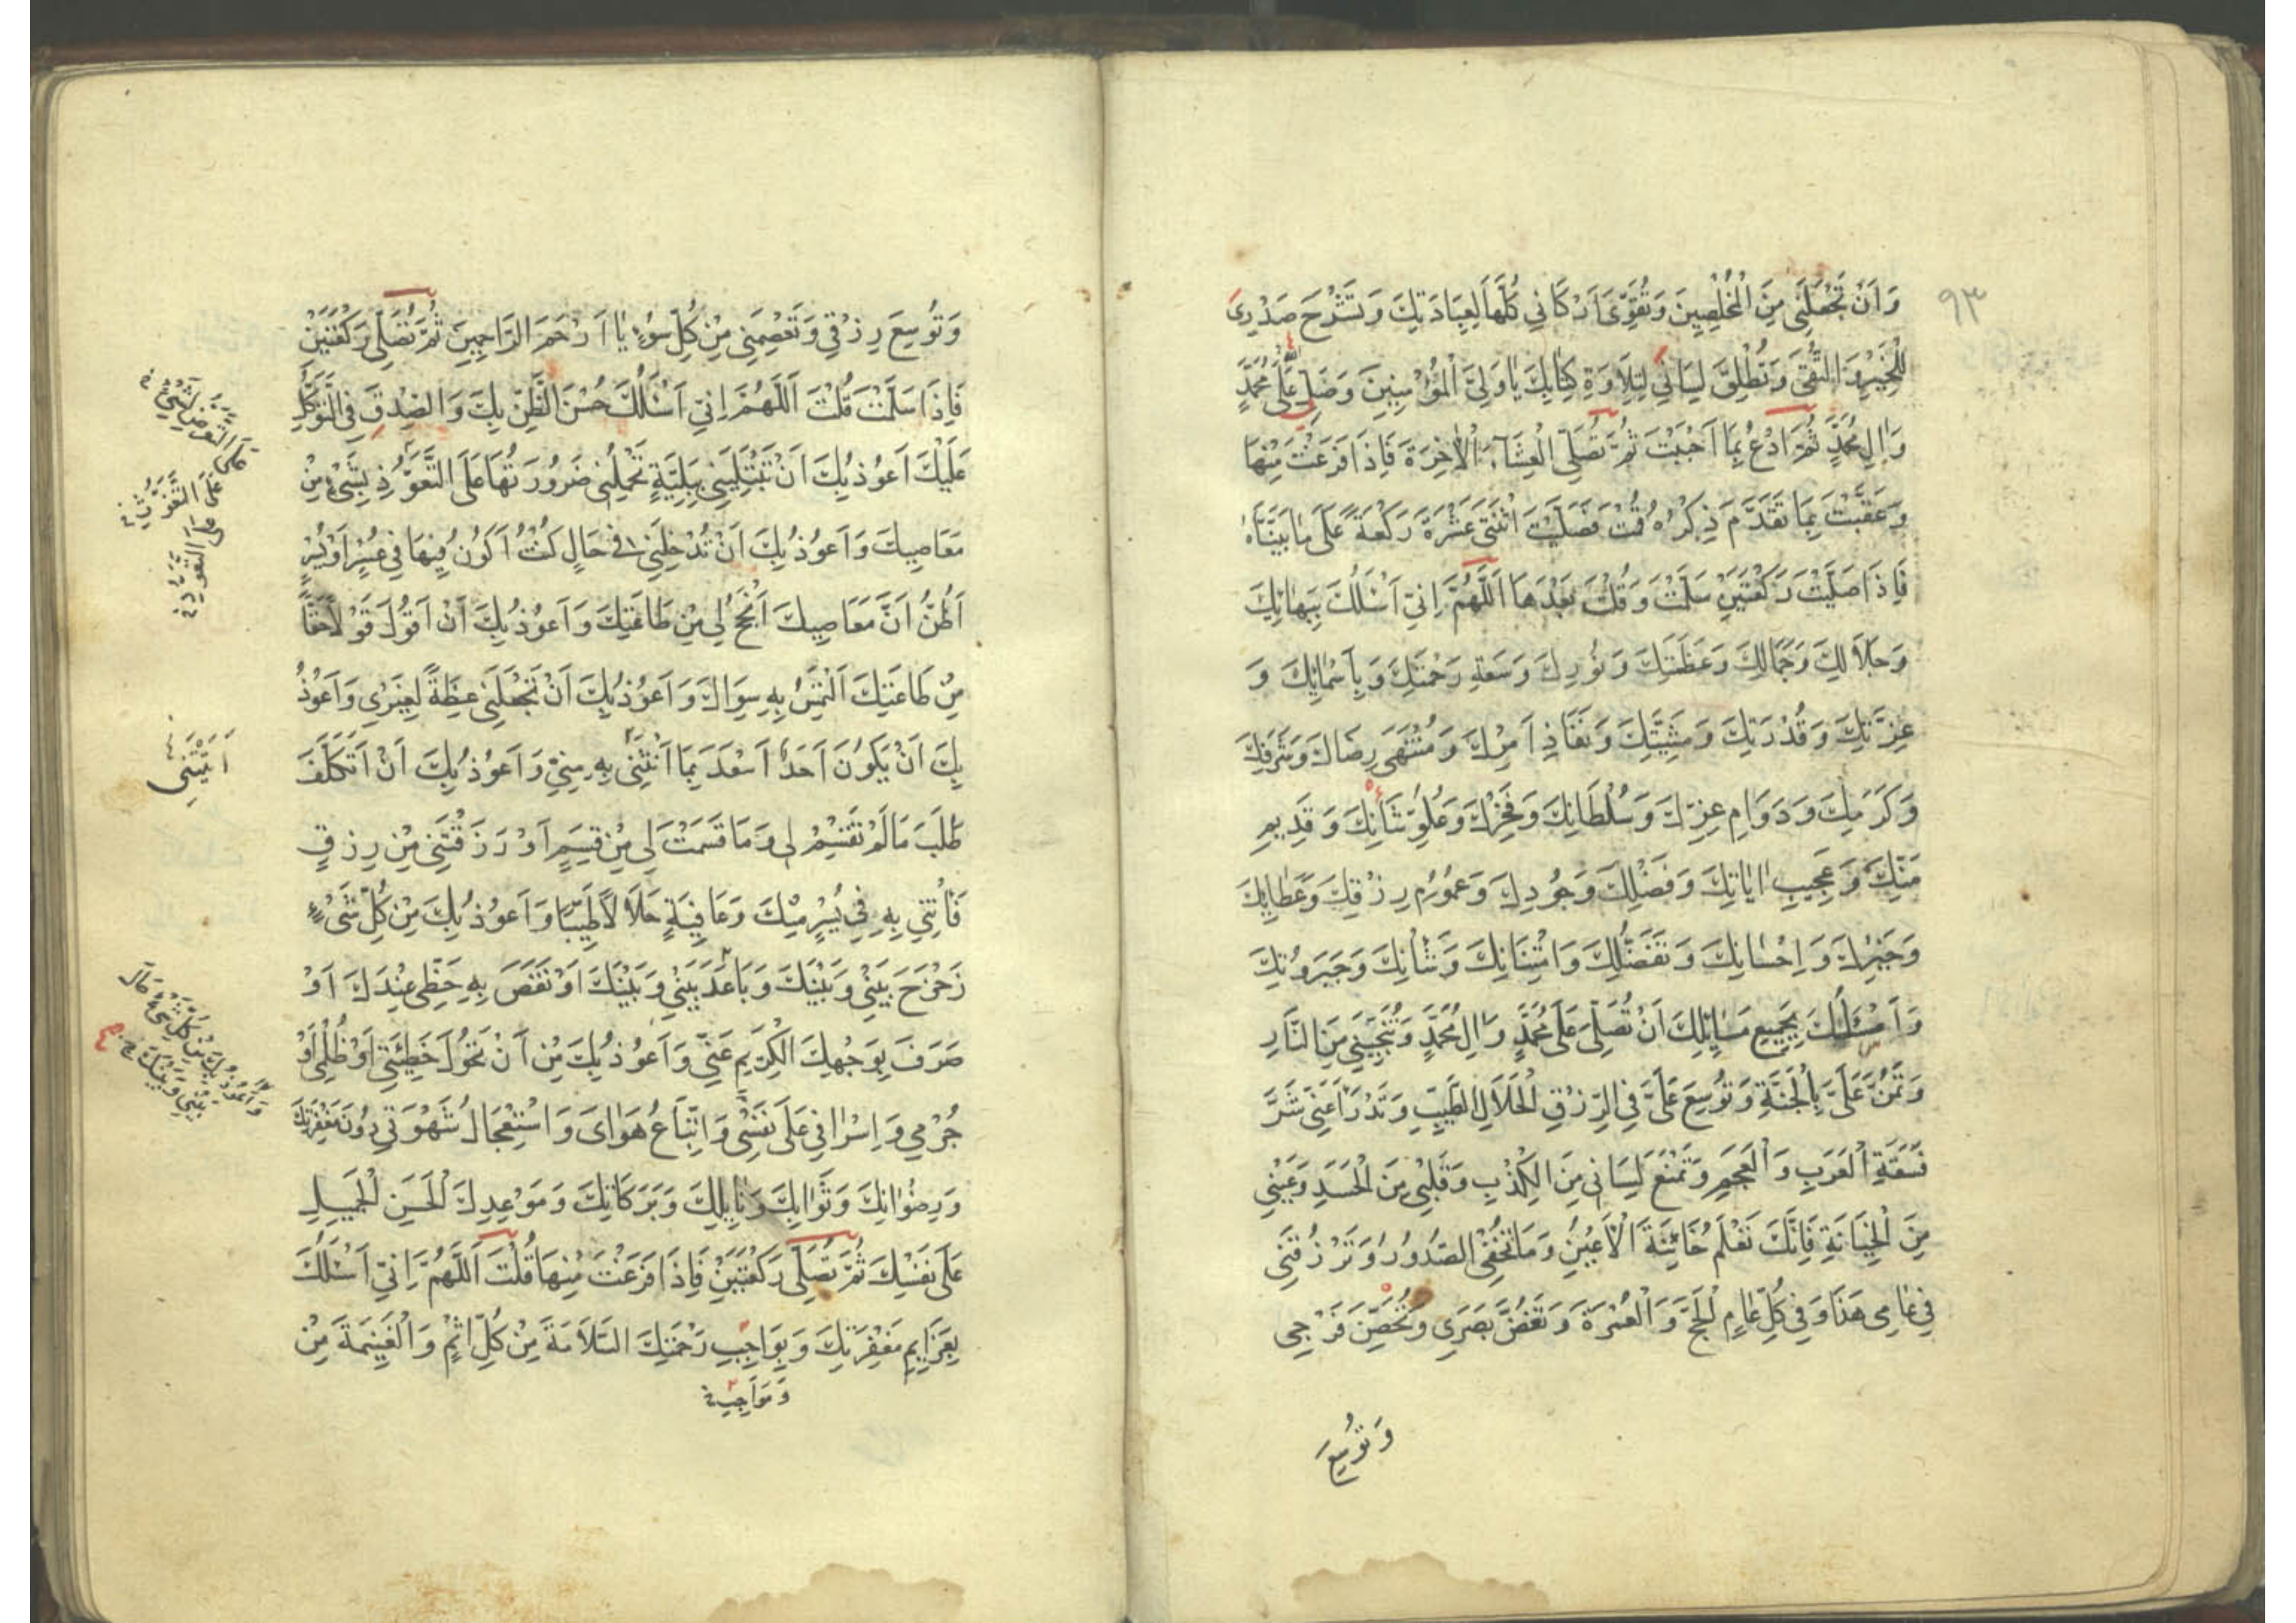 ٩٣
وَاَنْ تَجْعَلَنِی مِنَ الْمُخْلِصِینَ وَتُقَوِّیَ اَرْکَانِی کُلَّهَا لِعِبَادَتِكَ وَتَشْرَحَ صَدْرِی
لِلْخَیْرِ وَالتُّقَی وَتُطْلِقَ لِسَانِی لِتِلَاوَةِ کِتَابِكَ یَا وَلِیَّ الْمُؤْمِنِینَ وَصَلِّ عَلَی مُحَمَّدٍ
وَاٰلِ مُحَمَّدٍ ثُمَّ ادْعُ بِمَا اَحْبَبْتَ ثُمَّ تُصَلِّی الْعِشَآءَ الْاٰخِرَةَ فَاِذَا فَرَغْتَ مِنْهَا
وَعَقَّبْتَ بِمَا تَقَدَّمَ ذِکْرُهُ قُمْتَ فَصَلَّیْتَ اثْنَتَیْ عَشْرَةَ رَکْعَةً عَلَی مَا بَیَّنَّاهُ
فَاِذَا صَلَّیْتَ رَکْعَتَیْنِ سَلَّمْتَ وَقُلْتَ بَعْدَهَا اَللّٰهُمَّ اِنِّی اَسْئَلُكَ بِبَهَائِكَ
وَجَلَالِكَ وَجَمَالِكَ وَعَظَمَتِكَ وَنُورِكَ وَسَعَةِ رَحْمَتِكَ وَبِاَسْمَائِكَ وَ
عِزَّتِكَ وَقُدْرَتِكَ وَمَشِیَّتِكَ وَنَفَاذِ اَمْرِكَ وَمُنْتَهَی رِضَاكَ وَشَرَفِكَ
وَکَرَمِكَ وَدَوَامِ عِزِّكَ وَسُلْطَانِكَ وَفَخْرِكَ وَعُلُوِّ شَاْنِكَ وَقَدِیمِ
مَنِّكَ وَعَجِیبِ اٰیَاتِكَ وَفَضْلِكَ وَجُودِكَ وَعُمُومِ رِزْقِكَ وَعَطَائِكَ
وَخَیْرِكَ وَاِحْسَانِكَ وَتَفَضُّلِكَ وَامْتِنَانِكَ وَشَاْنِكَ وَجَبَرُوتِكَ
وَاَسْئَلُكَ بِجَمِیعِ مَسَائِلِكَ اَنْ تُصَلِّیَ عَلَی مُحَمَّدٍ وَاٰلِ مُحَمَّدٍ وَتُنْجِیَنِی مِنَ النَّارِ
وَتَمُنَّ عَلَیَّ بِالْجَنَّةِ وَتُوَسِّعَ عَلَیَّ فِی الرِّزْقِ الْحَلَالِ الطَّیِّبِ وَتَدْرَاَ عَنِّی شَرَّ
فَسَقَةِ الْعَرَبِ وَالْعَجَمِ وَتَمْنَعَ لِسَانِی مِنَ الْکَذِبِ وَقَلْبِی مِنَ الْحَسَدِ وَعَیْنِی
مِنَ الْخِیَانَةِ فَاِنَّكَ تَعْلَمُ خَائِنَةَ الْاَعْیُنِ وَمَا تُخْفِی الصُّدُورُ وَتَرْزُقَنِی
فِی عَامِی هَذَا وَفِی کُلِّ عَامٍ الْحَجَّ وَالْعُمْرَةَ وَتَغُضَّ بَصَرِی وَتُحَصِّنَ فَرْجِی
وَتُوَسِّعَ
وَتُوَسِّعَ رِزْقِی وَتَعْصِمَنِی مِنْ کُلِّ سُوءٍ یَا اَرْحَمَ الرَّاحِمِینَ ثُمَّ تُصَلِّی رَکْعَتَیْنِ
فَاِذَا سَلَّمْتَ قُلْتَ اَللّٰهُمَّ اِنِّی اَسْئَلُكَ حُسْنَ الظَّنِّ بِكَ وَالصِّدْقَ فِی التَّوَکُّلِ
عَلَیْكَ وَاَعُوذُ بِكَ اَنْ تَبْتَلِیَنِی بِبَلِیَّةٍ تَحْمِلُنِی ضَرُورَتُهَا عَلَی التَّعَوُّذِ بِشَیْءٍ مِنْ
مَعَاصِیكَ وَاَعُوذُ بِكَ اَنْ تُدْخِلَنِی فِی حَالٍ کُنْتُ اَکُونُ فِیهَا فِی عُسْرٍ اَوْ یُسْرٍ
اَظُنُّ اَنَّ مَعَاصِیكَ اَنْجَحُ لِی مِنْ طَاعَتِكَ وَاَعُوذُ بِكَ اَنْ اَقُولَ قَوْلًا حَقًّا
مِنْ طَاعَتِكَ اَلْتَمِسُ بِهِ سِوَاكَ وَاَعُوذُ بِكَ اَنْ تَجْعَلَنِی عِظَةً لِغَیْرِی وَاَعُوذُ
بِكَ اَنْ یَکُونَ اَحَدٌ اَسْعَدَ بِمَا اٰتَیْتَنِی بِهِ مِنِّی وَاَعُوذُ بِكَ اَنْ اَتَکَلَّفَ
طَلَبَ مَا لَمْ تَقْسِمْ لِی وَمَا قَسَمْتَ لِی مِنْ قِسَمٍ اَوْ رَزَقْتَنِی مِنْ رِزْقٍ
فَاْتِنِی بِهِ فِی یُسْرٍ مِنْكَ وَعَافِیَةٍ حَلَالًا طَیِّبًا وَاَعُوذُ بِكَ مِنْ کُلِّ شَیْءٍ
زَحْزَحَ بَیْنِی وَبَیْنَكَ وَبَاعَدَ بَیْنِی وَبَیْنَكَ اَوْ نَقَصَ بِهِ حَظِّی عِنْدَكَ اَوْ
صَرَفَ بِوَجْهِكَ الْکَرِیمِ عَنِّی وَاَعُوذُ بِكَ مِنْ اَنْ تَحُولَ خَطِیئَتِی اَوْ ظُلْمِی اَوْ
جُرْمِی وَاِسْرَافِی عَلَی نَفْسِی وَاتِّبَاعُ هَوَایَ وَاسْتِعْجَالُ شَهْوَتِی دُونَ مَغْفِرَتِكَ
وَرِضْوَانِكَ وَثَوَابِكَ وَنَائِلِكَ وَبَرَکَاتِكَ وَمَوْعِدِكَ الْحَسَنِ الْجَمِیلِ
عَلَی نَفْسِكَ ثُمَّ تُصَلِّی رَکْعَتَیْنِ فَاِذَا فَرَغْتَ مِنْهَا قُلْتَ اَللّٰهُمَّ اِنِّی اَسْئَلُكَ
بِعَزَایِمِ مَغْفِرَتِكَ وَبِوَاجِبِ رَحْمَتِكَ السَّلَامَةَ مِنْ کُلِّ اِثْمٍ وَالْغَنِیمَةَ مِنْ
وَمَوَاجِبِ
عَلَی التَّعَرُّضِ لِشَیْءٍ
عَلَی التَّغَوُّثِ
وَاَعُوذُ بِكَ مِنْ کُلِّ شَیْءٍ حَالَ
بَیْنِی وَبَیْنَكَ